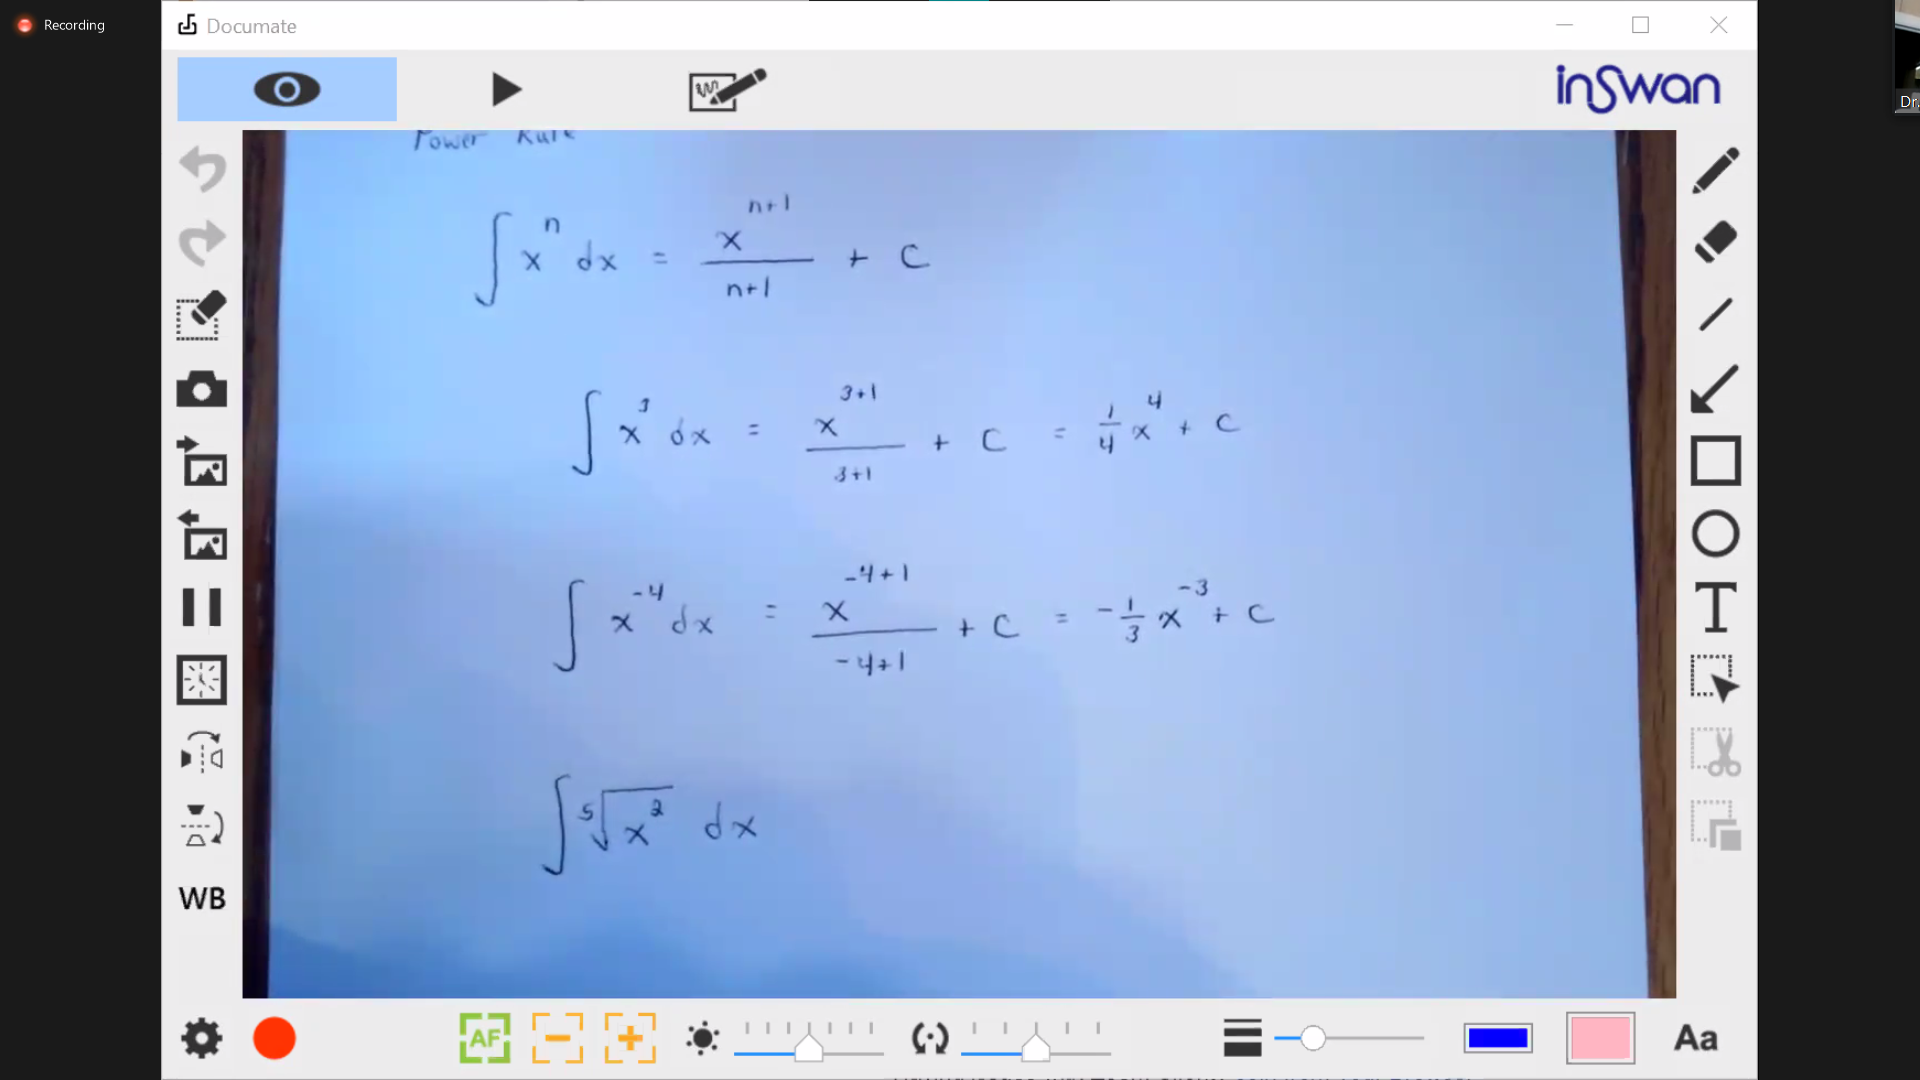 Recording
Documate
inSwan
Power Rule
∫ xⁿ dx = xⁿ⁺¹ / n+1 + C
∫ x³ dx = x³⁺¹ / 3+1 + C = 1/4 x⁴ + C
∫ x⁻⁴ dx = x⁻⁴⁺¹ / -4+1 + C = -1/3 x⁻³ + C
∫ ⁵√x² dx
WB
T
AF
Aa
Dr.